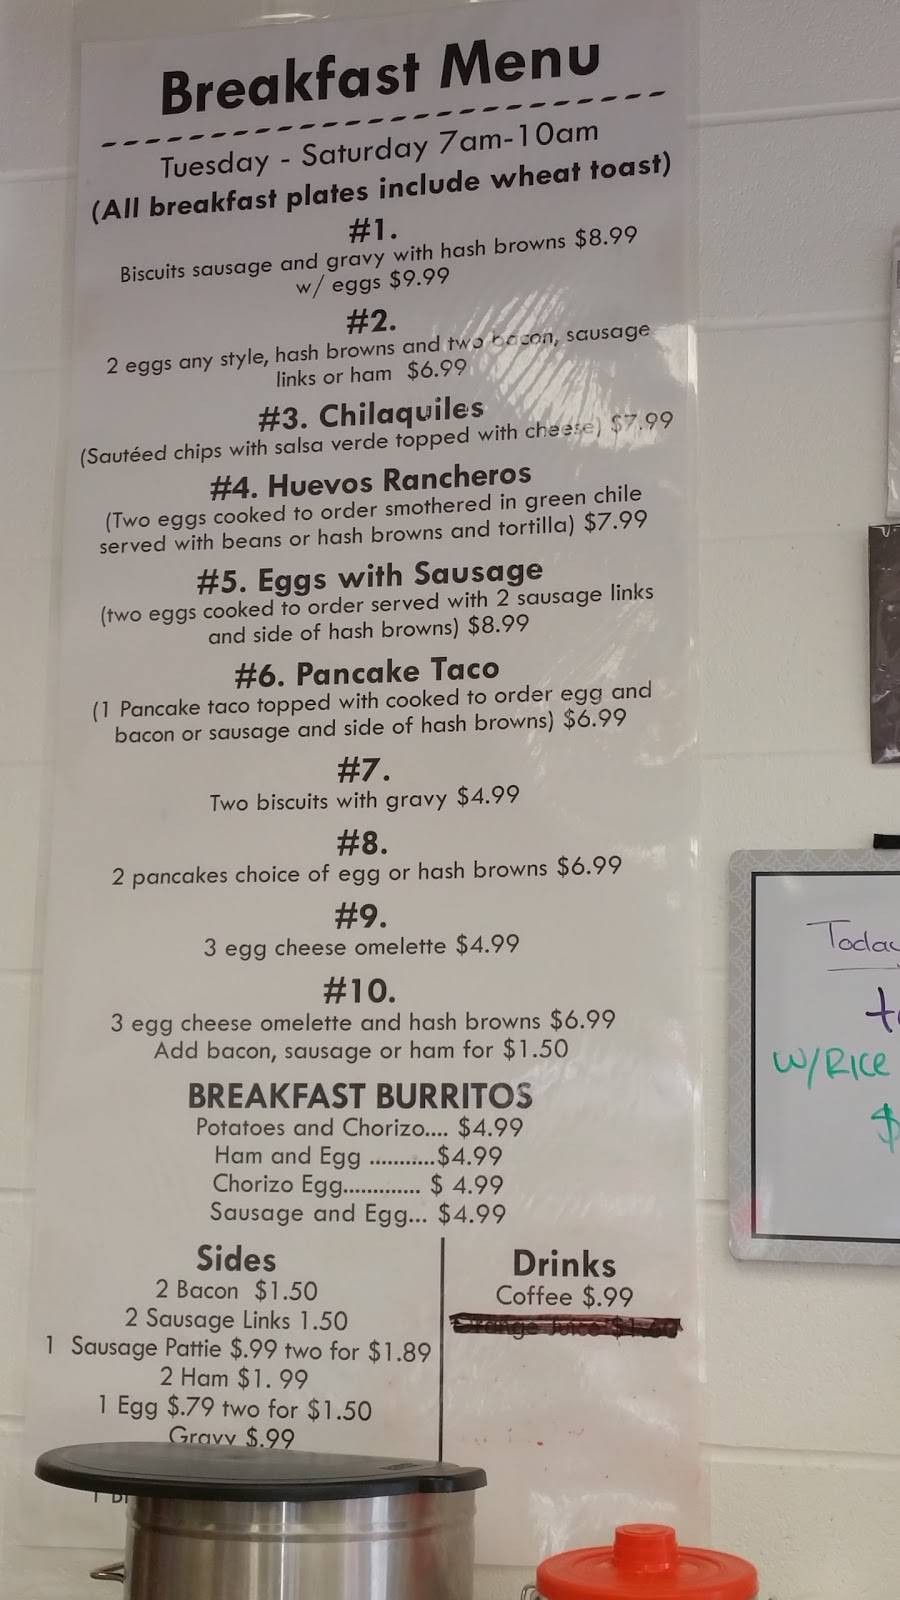 Breakfast Menu
Tuesday - Saturday 7am-10am
(All breakfast plates include wheat toast)
#1.
Biscuits sausage and gravy with hash browns $8.99
w/ eggs $9.99
#2.
2 eggs any style, hash browns and two bacon, sausage
links or ham $6.99
#3. Chilaquiles
(Sautéed chips with salsa verde topped with cheese) $7.99
#4. Huevos Rancheros
(Two eggs cooked to order smothered in green chile
served with beans or hash browns and tortilla) $7.99
#5. Eggs with Sausage
(two eggs cooked to order served with 2 sausage links
and side of hash browns) $8.99
#6. Pancake Taco
(1 Pancake taco topped with cooked to order egg and
bacon or sausage and side of hash browns) $6.99
#7.
Two biscuits with gravy $4.99
#8.
2 pancakes choice of egg or hash browns $6.99
#9.
3 egg cheese omelette $4.99
#10.
3 egg cheese omelette and hash browns $6.99
Add bacon, sausage or ham for $1.50
BREAKFAST BURRITOS
Potatoes and Chorizo.... $4.99
Ham and Egg ...........$4.99
Chorizo Egg............. $ 4.99
Sausage and Egg... $4.99
Sides
2 Bacon $1.50
2 Sausage Links 1.50
1 Sausage Pattie $.99 two for $1.89
2 Ham $1. 99
1 Egg $.79 two for $1.50
Gravy $.99
Drinks
Coffee $.99
Orange Juice $1.60
W/RICE
$